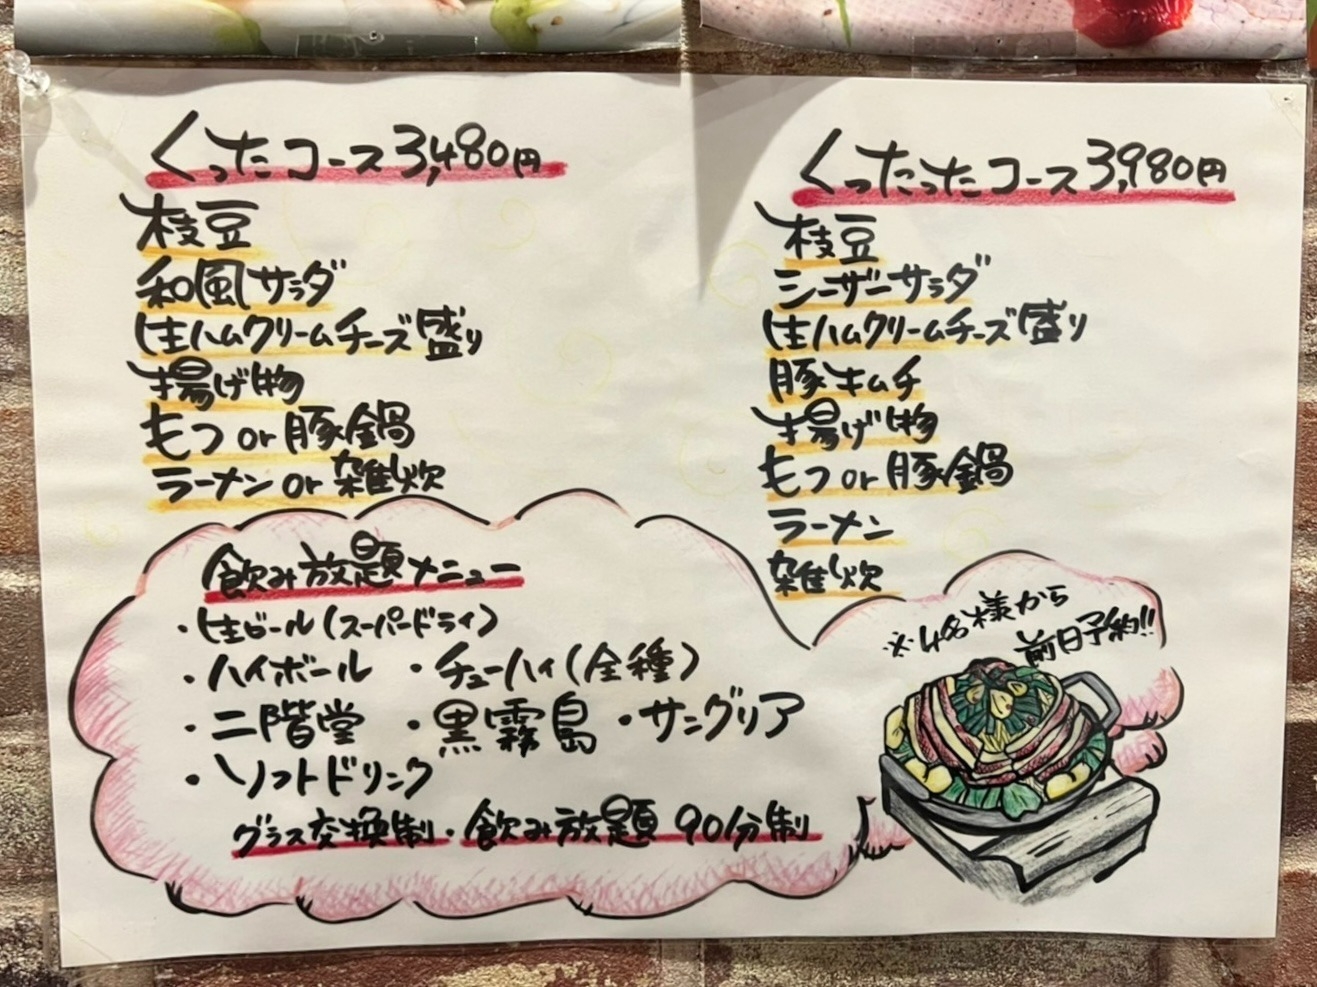 くったコース3,480円
枝豆
和風サラダ
生ハムクリームチーズ盛り
揚げ物
もつor豚鍋
ラーメンor雑炊
くったったコース3,980円
枝豆
シーザーサラダ
生ハムクリームチーズ盛り
豚キムチ
揚げ物
もつor豚鍋
ラーメン
雑炊
※4名様から
前日予約!!
飲み放題メニュー
・生ビール(スーパードライ)
・ハイボール ・チューハイ(全種)
・二階堂 ・黒霧島 ・サングリア
・ソフトドリンク
グラス交換制・飲み放題90分制